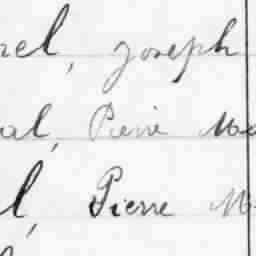 rel, Joseph
al, Pierre Ma
l, Pierre M